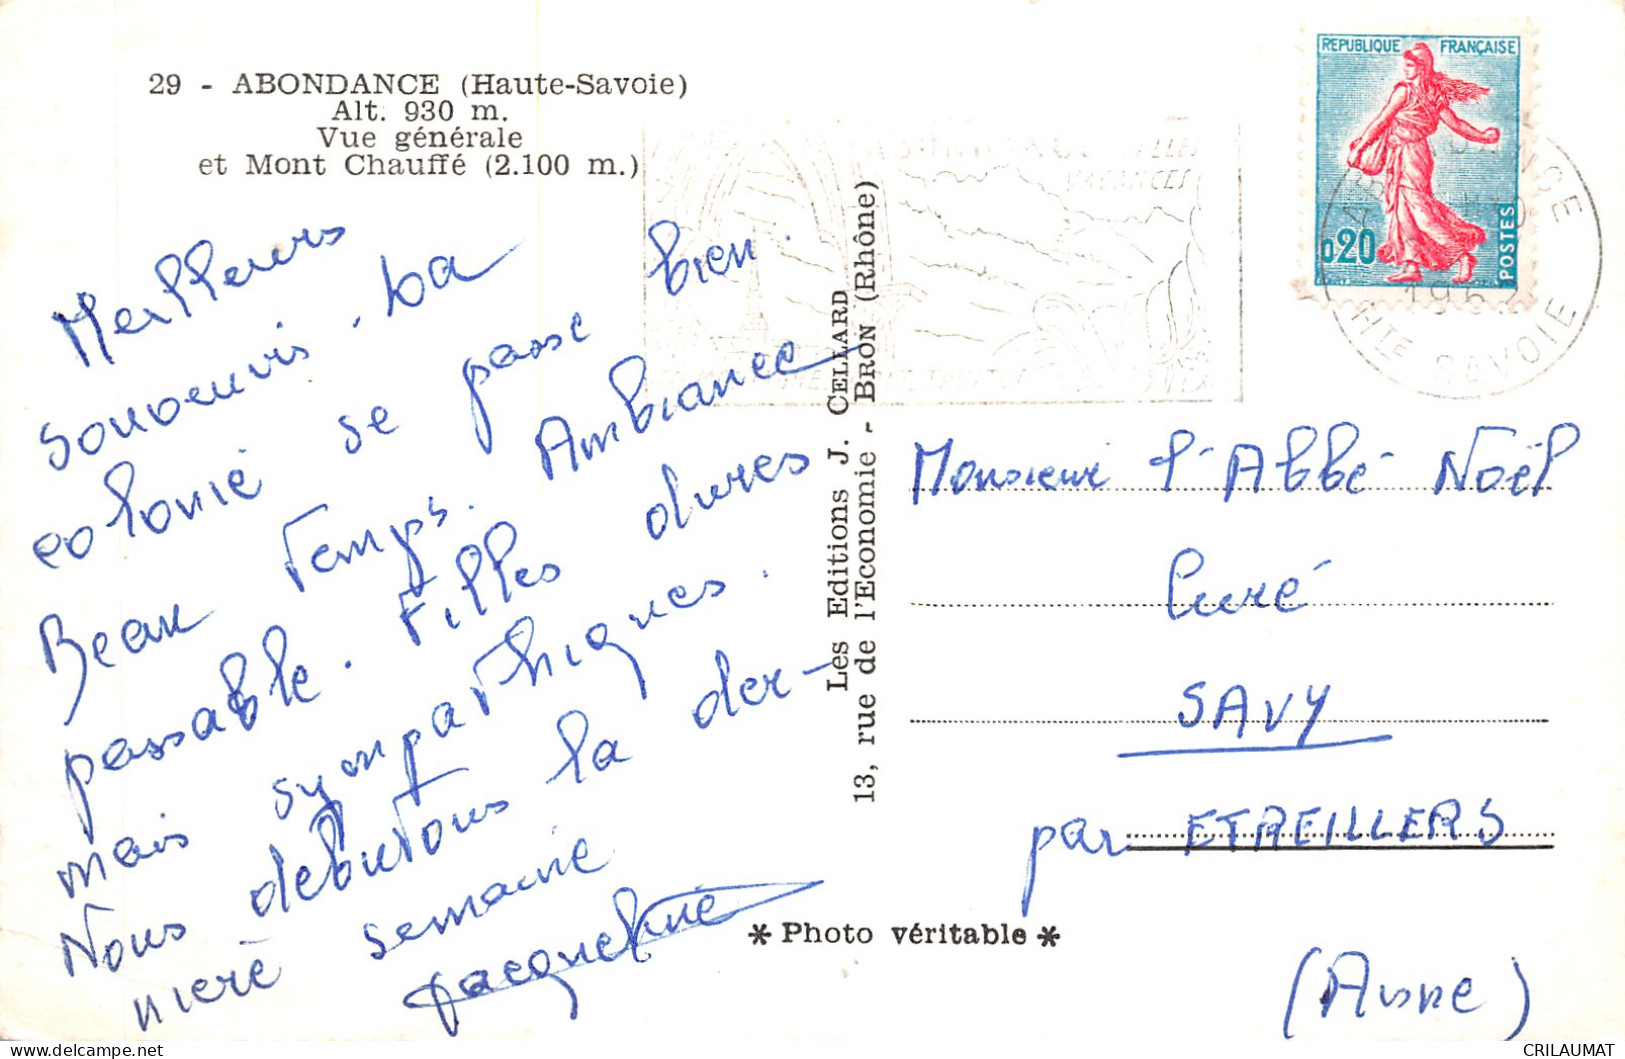 29 - ABONDANCE (Haute-Savoie)
Alt. 930 m.
Vue générale
et Mont Chauffé (2.100 m.)
Meilleurs
souvenirs. La
colonie se passe bien.
Beau temps. Ambiance
passable. Filles dures
mais sympathiques.
Nous débutons la der-
nière semaine
Jacqueline
Les Editions J. CELLARD
13, rue de l'Economie - BRON (Rhône)
* Photo véritable *
REPUBLIQUE FRANÇAISE
0,20
POSTES
1962
HTE SAVOIE
VACANCES
Monsieur l'Abbé Noël
Curé
SAVY
par ETREILLERS
(Aisne)
CRILAUMAT